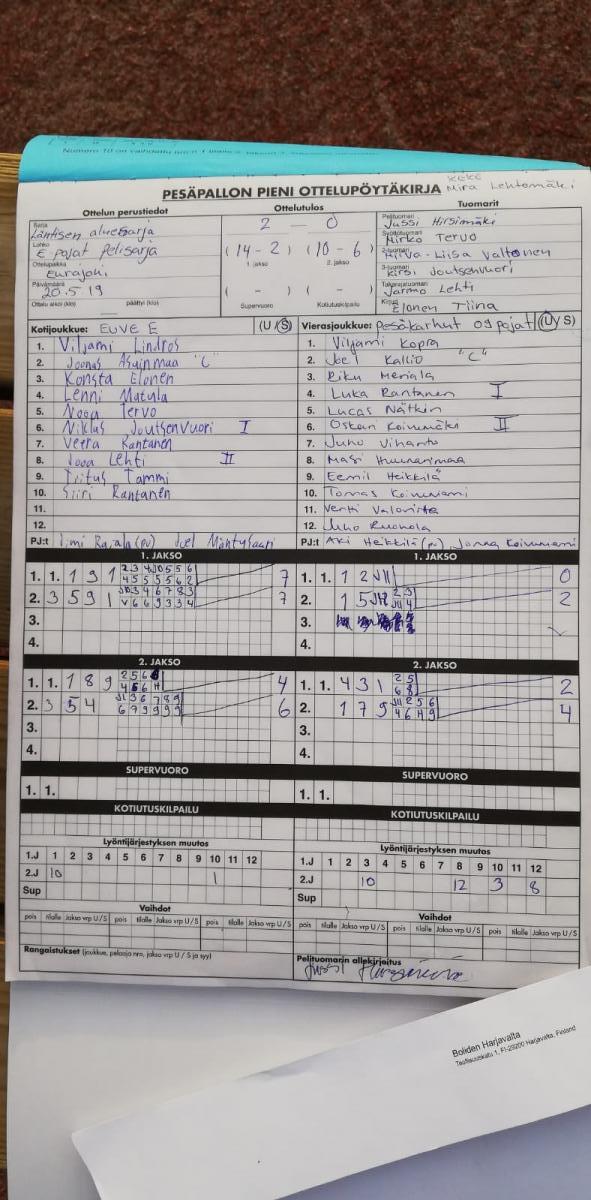 Keke
Mira Lehtomäki
PESÄPALLON PIENI OTTELUPÖYTÄKIRJA
Ottelun perustiedot
Ottelutulos
Tuomarit
Sarja
Läntisen aluesarja
Lohko
E pojat pelisarja
Ottelupaikka
Eurajoki
Päivämäärä
20.5 19
Ottelu alkoi (klo) päättyi (klo)
2 - 0
(14 - 2) (10 - 6)
1. jakso 2. jakso
( - ) ( - )
Supervuoro Kotiutuskilpailu
Pelituomari
Jussi Hirsimäki
Syöttötuomari
Mirko Tervo
2-tuomari
Ritva-Liisa Valtonen
3-tuomari
Kirsi Joutsenvuori
Takarajatuomari
Jarmo Lehti
Kirjuri
Elonen Tiina
Kotijoukkue: EUVE E (U / S)
1. Viljami Lindros
2. Joonas Asuinmaa "C"
3. Konsta Elonen
4. Lenni Matula
5. Nooa Tervo
6. Niklas Joutsenvuori I
7. Veera Rantanen
8. Jooa Lehti II
9. Tiitus Tammi
10. Siiri Rantanen
11.
12.
PJ:t Jimi Rajala (pv) Joel Mäntysaari
Vierasjoukkue: Pesäkarhut 09 pojat (U / S)
1. Viljami Kopra
2. Joel Kallio "C"
3. Riku Meriala
4. Luka Rantanen I
5. Lucas Nätkin
6. Oskari Koivumäki II
7. Juho Vihanto
8. Masi Huunarimaa
9. Eemil Heikkilä
10. Tomas Koivuniemi
11. Verti Valovirta
12. Juho Ruohola
PJ:t Aki Heikkilä (pv), Jonna Koivuniemi
1. JAKSO
1. 1. 1 9 1 7
2. 3 5 9 1 7
3.
4.
1. JAKSO
1. 1. 1 2 0
2. 1 5 2
3.
4.
2. JAKSO
1. 1. 1 8 9 4
2. 3 5 4 6
3.
4.
2. JAKSO
1. 1. 4 3 1 2 5 6 8 2
2. 1 7 9 4
3.
4.
SUPERVUORO
1. 1.
SUPERVUORO
1. 1.
KOTIUTUSKILPAILU
KOTIUTUSKILPAILU
Lyöntijärjestyksen muutos
1.J 1 2 3 4 5 6 7 8 9 10 11 12
2.J 10 1
Sup
Lyöntijärjestyksen muutos
1.J 1 2 3 4 5 6 7 8 9 10 11 12
2.J 10 12 3 8
Sup
Vaihdot
pois tilalle Jakso vrp U / S pois tilalle Jakso vrp U / S pois tilalle Jakso vrp U / S
Vaihdot
pois tilalle Jakso vrp U / S pois tilalle Jakso vrp U / S pois tilalle Jakso vrp U / S
Rangaistukset (joukkue, pelaaja nro, jakso vrp U / S ja syy)
Pelituomarin allekirjoitus
Boliden Harjavalta
Teollisuuskatu 1, FI-29200 Harjavalta, Finland